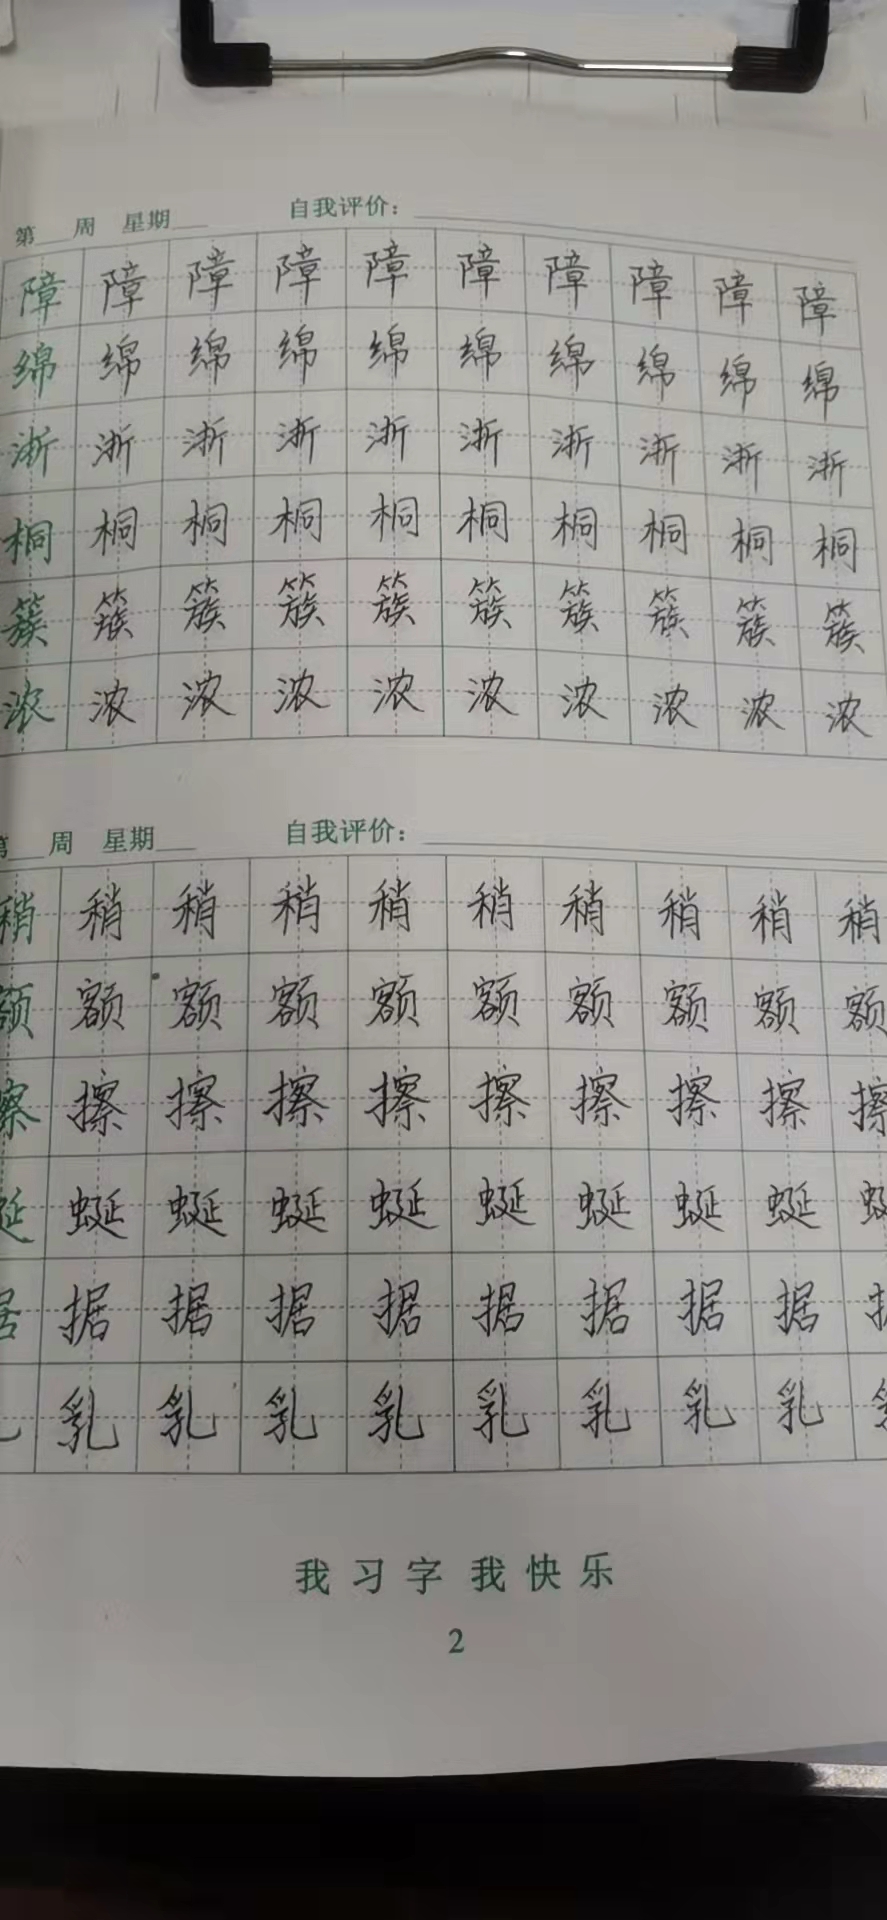 第 周 星期 自我评价：
障 障 障 障 障 障 障 障 障 障
绵 绵 绵 绵 绵 绵 绵 绵 绵 绵
浙 浙 浙 浙 浙 浙 浙 浙 浙 浙
桐 桐 桐 桐 桐 桐 桐 桐 桐 桐
簇 簇 簇 簇 簇 簇 簇 簇 簇 簇
浓 浓 浓 浓 浓 浓 浓 浓 浓 浓
第 周 星期 自我评价：
稍 稍 稍 稍 稍 稍 稍 稍 稍 稍
额 额 额 额 额 额 额 额 额 额
擦 擦 擦 擦 擦 擦 擦 擦 擦 擦
蜒 蜒 蜒 蜒 蜒 蜒 蜒 蜒 蜒
据 据 据 据 据 据 据 据 据
乳 乳 乳 乳 乳 乳 乳 乳
我习字 我快乐
2